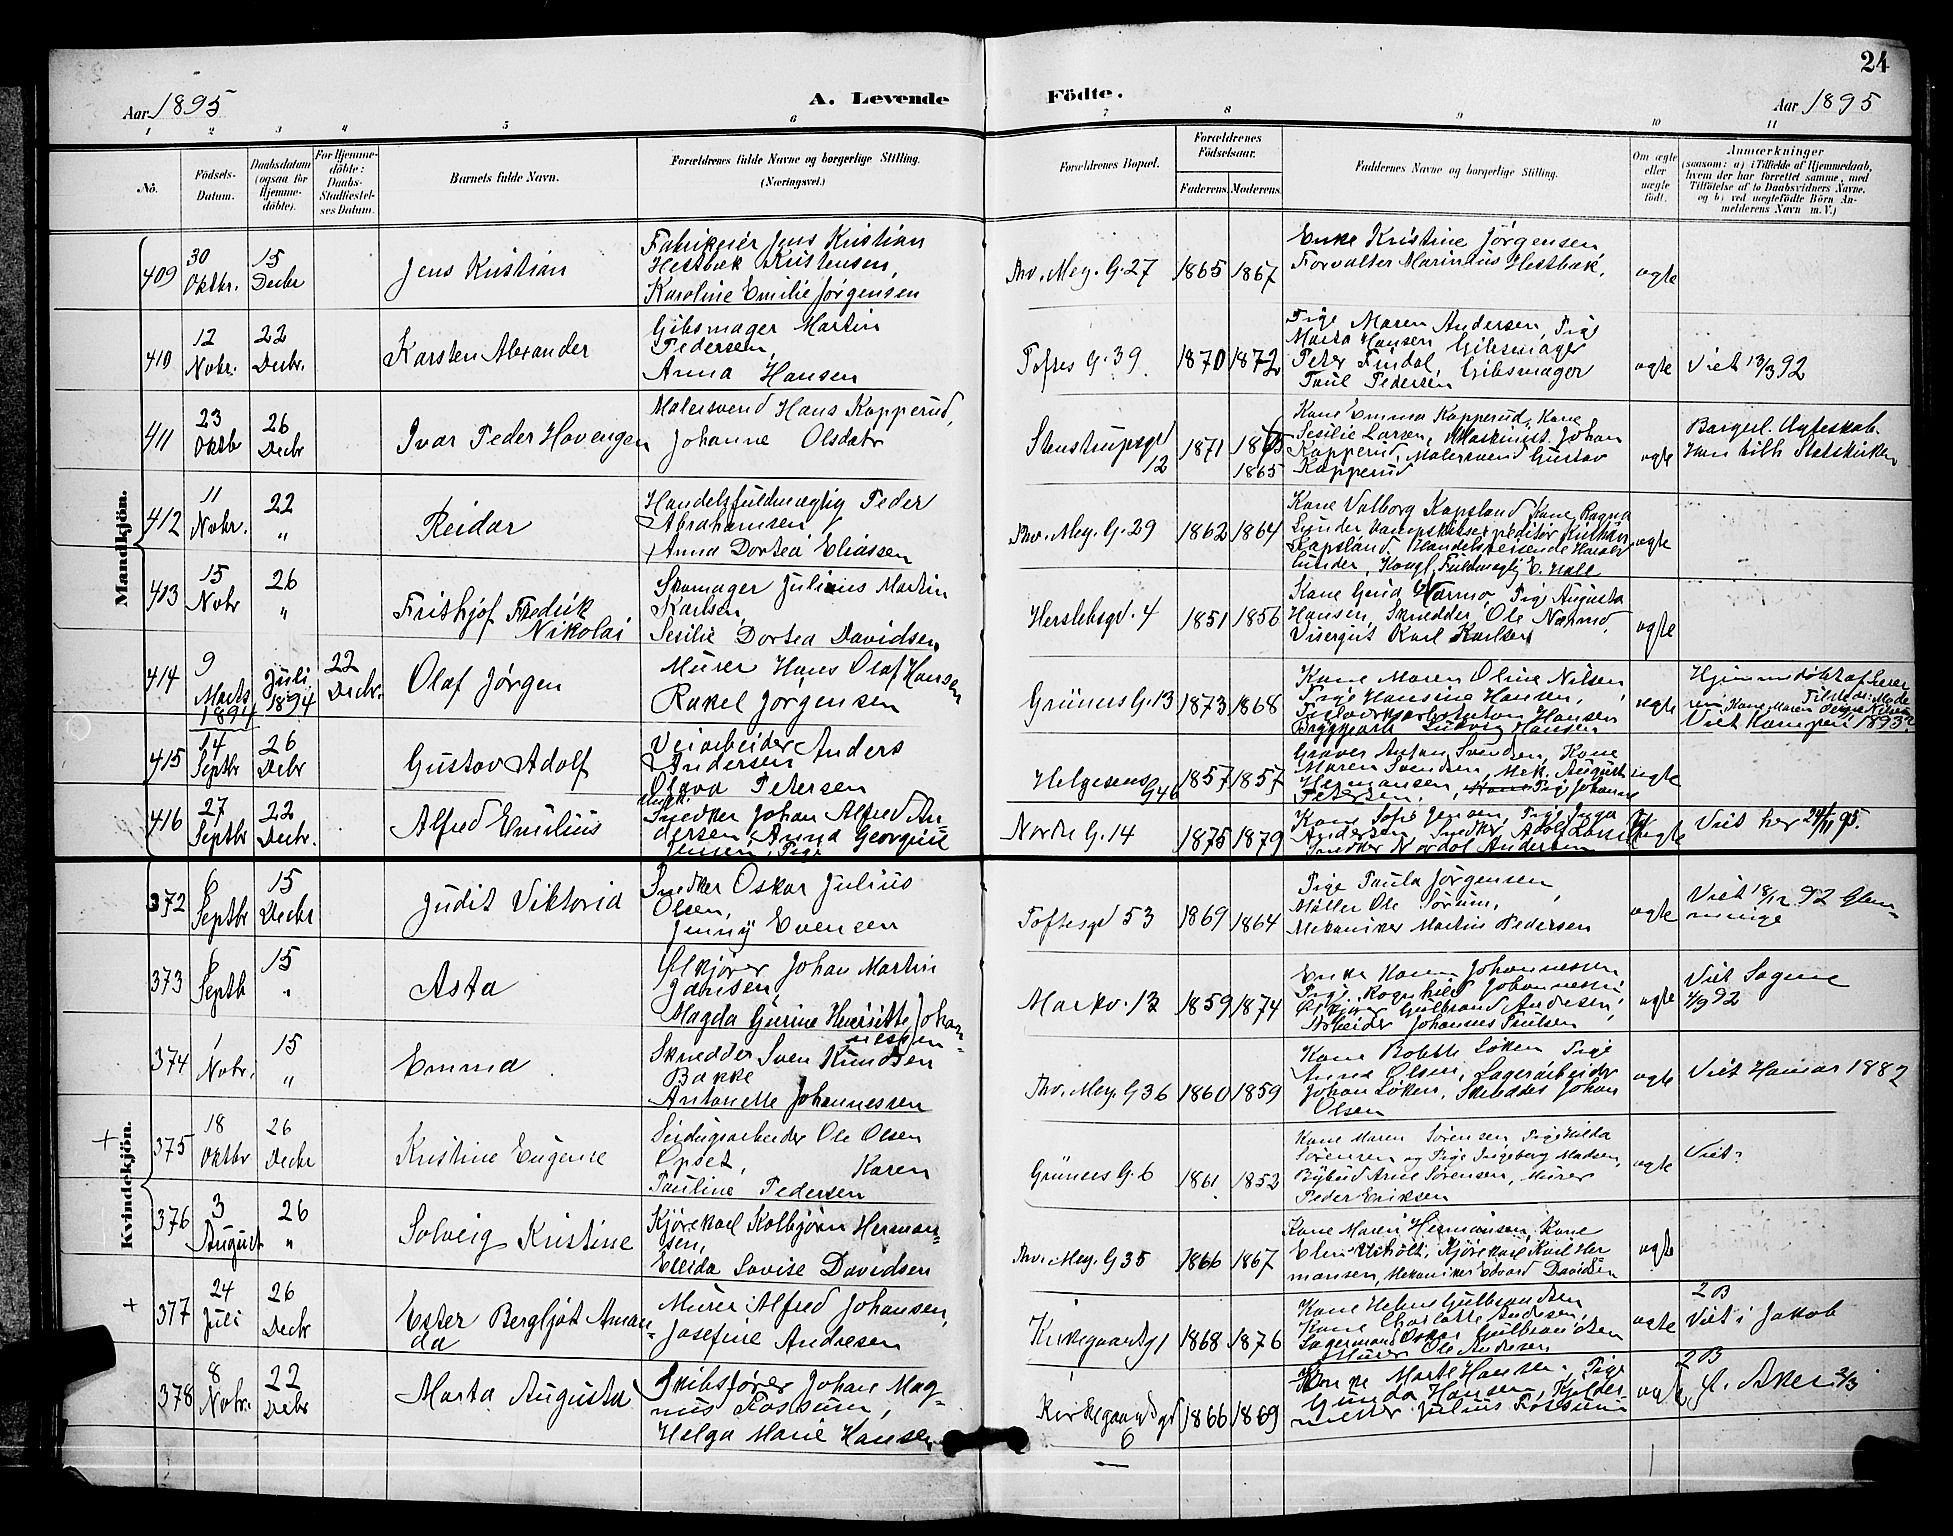 24
Aar 1895
A. Levende
Födte.
Aar 1895
1 2 3 4 5 6 7 8 9 10 11
No.
Födsels-
Datum.
Daabsdatum
(ogsaa for
Hjemme-
döbte).
For Hjemme-
döbte:
Daabs-
Stadfæstel-
ses Datum.
Barnets fulde Navn.
Forældrenes fulde Navne og borgerlige Stilling.
(Næringsvei.)
Forældrenes Bopæl.
Forældrenes
Födselsaar.
Faderens. Moderens.
Faddernes Navne og borgerlige Stilling.
Om ægte
eller
uægte
født.
Anmærkninger
(saasom: a) i Tilfælde af Hjemmedaab,
hvem der har forrettet samme, med
Tilföielse af to Daabsvidners Navne,
og b) ved uægtefödte Börn An-
melderens Navn m. V.)
Mandkjön.
409
30
Oktbr.
15
Decbr
Jens Kristian
Fabrikeier Jens Kristian
Hestbæk Kristensen,
Karoline Emilie Jørgensen
Thv. Mey. G. 27
1865
1867
Enke Kristine Jörgensen
Forvalter Marinius Hestbæk.
ægte
410
12
Novbr.
22
Decbr.
Karsten Alexander
Gibsmager Martin
Pedersen,
Anna Hansen
Toftes G. 39
1870
1872
Pige Maren Andersen, Pige
Marta Hansen, Gibsmager
Peter Findal, Gibsmager
Paul Pedersen
ægte
Viet 13/3 92
411
23
Oktbr
26
Decbr
Ivar Peder Hovengen
Malersvend Hans Kopperud,
Johanne Olsdatr
Stenstrupsgd
12
1871
1865
Kone Emma Kopperud, Kone
Sesilie Larsen, Maskinist Johan
Kopperud, Malersvend Gustav
Kopperud
ægte
Borgerl. Ægteskab.
Han tilh Statskirken
412
11
Novbr.
22
"
Reidar
Handelsfuldmægtig Peder
Abrahamsen
Anna Dortea Eliassen
Thv. Mey. G. 29
1862
1864
Kone Valborg Kapsland, Kone Ragna
Kapsland, Handelsreisende Harald
Lunder, Kongl. Fuldmægtig E. Hall
ægte
413
15
Novbr
26
"
Frithjof Fredrik
Nikolai
Skomager Julinius Martin
Karlsen,
Sesilie Dortea Davidsen
Herslebsgd. 4
1851
1856
Kone Gina Nærmo, Pige Augusta
Hansen, Skrædder Ole Nærmo,
Visergut Karl Karlsen
ægte
414
9
Marts
1894
Juli
1894
22
Decbr.
Olaf Jørgen
Murer Hans Olaf Hansen
Rakel Jørgensen
Grüners G. 13
1873
1868
Kone Maren Oline Nilsen
Pige Hansine Hansen,
Teglværksarb. Anton Hansen
Bryggearb Ludvig Hansen
ægte
Viet Kampen 1893
415
14
Septbr
26
Decbr
Gustav Adolf
Veiarbeider Anders
Andersen
Olava Petersen
Helgesens
G 46
1857
1857
Graver Anton Svendsen, Kone
Maren Svendsen, Mek. August
Hermansen, Pige Johanne
Petersen.
ægte
416
27
Septbr
22
Decbr.
Alfred Emilius
Snedker Johan Alfred An
dersen, Anna Georgine
Jensen, Pige
Nordre G. 14
1875
1879
Kone Sofie Jensen, Pige Inga
Andersen, Snedker Adolf
Snedker Nordol Andersen
uægte
Viet her 24/11 95.
Kvindekjön.
372
6
Septbr
15
Decbr
Judit Viktoria
Snedker Oskar Julius
Olsen,
Jenny Evensen
Toftesgd 53
1869
1864
Pige Paula Jørgensen,
Møller Ole Sörum,
Mekaniker Martin Pedersen
ægte
Viet 18/12 92 Glem-
minge
373
6
Septb
15
"
Asta
Ølkjører Johan Martin
Jansen
Magda Gurine Henriette Johan-
nessen
Markv. 13
1859
1874
Enke Karen Johannessen
Pige Ragnhild Johannessen,
Ølkjører Gulbrand Andersen,
Arbeider Johannes Paulsen
ægte
Viet Sagene
4/9 92
374
1
Novbr.
15
"
Emma
Skrædder Sven Knudsen
Bakke
Antonette Johannessen
Thv. Mey. G 36
1860
1859
Kone Bolette Løken, Pige
Anna Olsen, Lagerarbeider
Johan Løken, Skrædder Johan
Olsen
ægte
Viet Hamar 1882
+
375
18
Oktbr
26
Decbr
Kristine Eugenie
Seildugsarbeider Ole Olsen
Opset, Karen
Pauline Pedersen
Grüners G. 6
1861
1852
Kone Maren Sørensen, Pige Hilda
Sørensen og Pige Ingeborg Madsen,
Bybud Arne Sørensen, Murer
Peder Eriksen
ægte
Viet
376
3
August
26
"
Solveig Kristine
Kjørekarl Kolbjørn Herman-
sen,
Ellida Lovise Davidsen
Thv. Mey. G 35
1866
1867
Kone Maren Hermansen, Kone
Kjørekarl Karl Her
mansen, Mekaniker Edvard Davidsen
ægte
+
377
24
Juli
26
Decbr
Ester Bergljot Aman-
da
Murer Alfred Johansen,
Josefine Andresen
Kirkegaardsgd 1
1868
1876
Kone Helene Gulbrandsen
Kone Charlotte Andersen,
Lagermand Oskar Gulbrandsen
Murer Ole Andersen
ægte
2B
Viet i Jakob
378
8
Novbr.
22
Decbr
Marta Augusta
Skibsfører Johan Mag-
nus Fossum,
Helga Marie Hansen
Kirkegaardsgd
6
1866
1869
Enke Marte Hansen, Pige
Gunda Hansen, Kjelder-
mester Julius Fossum
ægte
2B
V. Aker 2/3